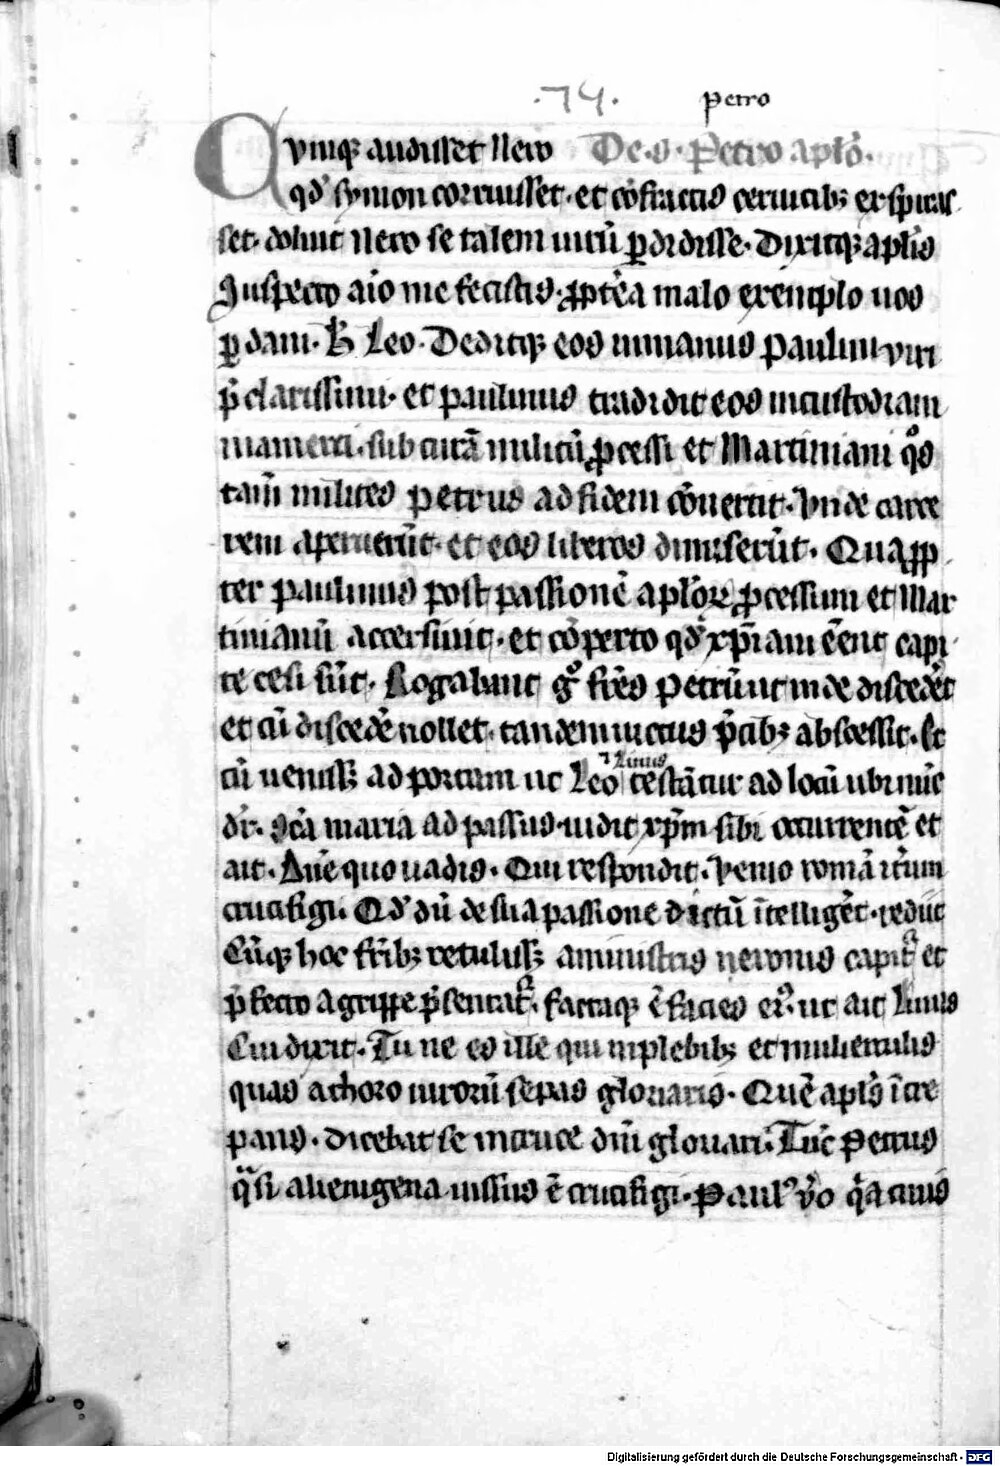 .74. petro
Cumq; audisset Nero De .s. Petro aplo.
qd symon corruisset. et cofractis ceruicib; expiras
set. doluit Nero se talem uiru pdidisse. Dixitq; aplis
Inspecto aio me fecistis. pptea malo exemplo uos
pdam. h Leo. Deditq; eos inmanus paulini uiri
pclarissimi. et paulinus tradidit eos incustodiam
mamerti. sub cura militu pcessi et Martiniani qos
tam milites petrus ad fidem couertit. Vnde carce
rem aperuerut. et eos liberos dimiserut. Quapp
ter paulinus post passione aplor pcessum et Mar
tinianu accersiuit. et coperto qd xpiani eent capi
te cesi sut. Rogabant go fres petru ut inde discedet
et cu discede nollet. tandem uictus pcib; abscessit. Et
cu uenisset ad portam ut Leo 7 Linus testatur ad locu ubi nuc
dr. sca maria ad passus. uidit xpm sibi occurrente et
ait. Dne quo uadis. Qui respondit. Venio roma iterum
crucifigi. Qd du de sua passione dictu itelliget. rediit
Cuq; hoc frib; retuliss; aministris neronis capit et
pfecto agrippe psentat. factaq; e facies ei. ut ait Linus
Cui dixit. Tu ne es ille qui inplebib; et mulierculis
quas athoro uiroru sepas gloriaris. Que apls icre
pans. dicebat se incruce dni gloriari. Tuc Petrus
qsi alienigena. iussus e crucifigi. Paul uo qa ciuis